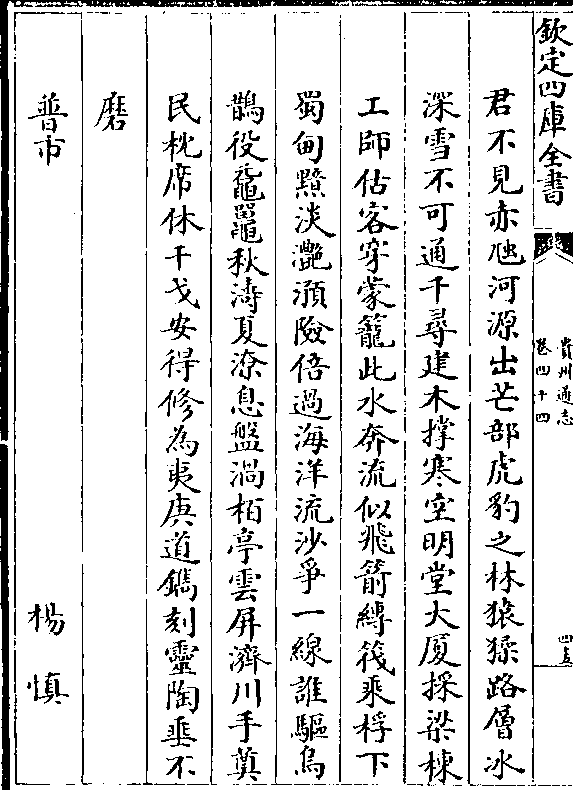 欽定四庫全書
貴州通志
卷四十四
四五
君不見赤虺河源出芒部虎豹之林猿猱路層冰
深雪不可通千尋建木撑寒空明堂大厦採梁棟
工師估客穿蒙籠此水奔流似飛箭縛筏乘桴下
蜀甸黯淡灔澦險倍過海洋流沙爭一線誰驅烏
鵲役黿鼉秋濤夏潦息盤渦栢亭雲屏濟川手奠
民枕席休干戈安得修為夷庚道鐫刻靈陶垂不
磨
普市 楊慎